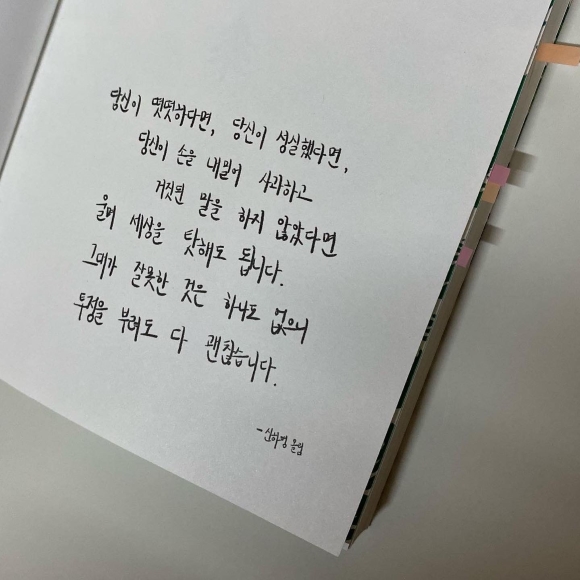 당신이 떳떳하다면, 당신이 성실했다면,
당신이 손을 내밀어 사과하고
거짓된 말을 하지 않았다면
울며 세상을 탓해도 됩니다.
그대가 잘못한 것은 하나도 없으니
투정을 부려도 다 괜찮습니다.
- 신하영 올림